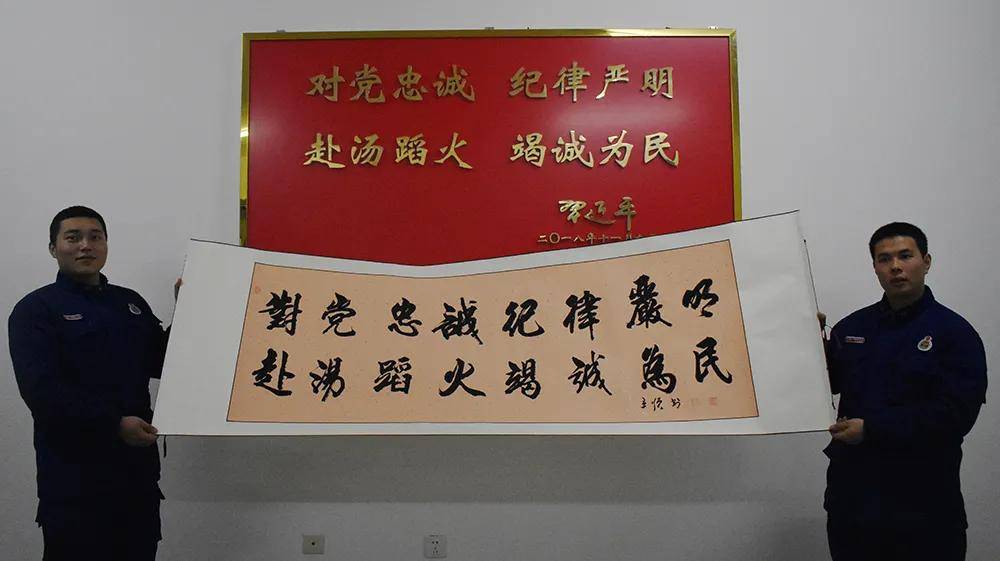 对党忠诚 纪律严明
赴汤蹈火 竭诚为民
习近平
二〇一八年十一月
對党忠誠纪律嚴明
赴湯蹈火竭诚為民